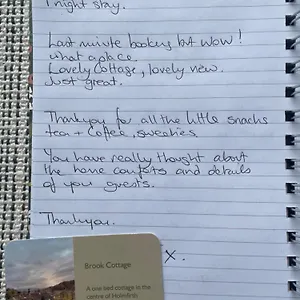 1 night stay.
Last minute bookers but wow!
what a place.
Lovely cottage, lovely view.
Just great.
Thankyou for all the little snacks
tea + coffee, sweeties.
You have really thought about
the home comforts and details
of your guests.
Thankyou.
x.
Brook Cottage
A one bed cottage in the
centre of Holmfirth